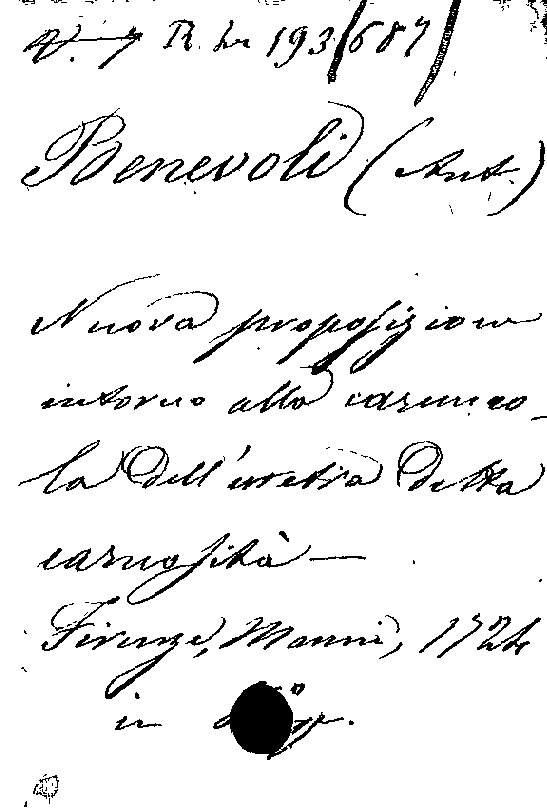 V. 7 R. hr 193/687/
Benevoli (Ant.)
Nuova proposizione
intorno alla carunco-
la dell'uretra detta
carnosità —
Firenze, Manni, 1724
in